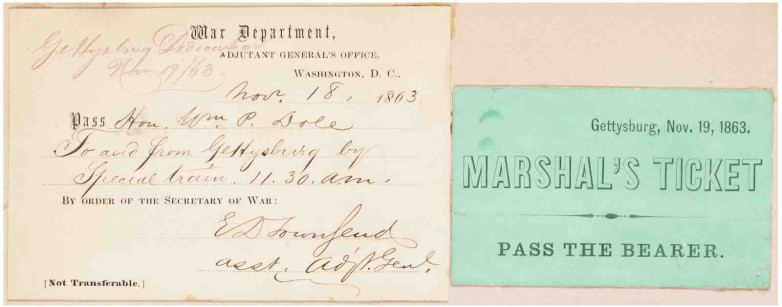 War Department,
Gettysburg Dedication
ADJUTANT GENERAL'S OFFICE,
Nov 19/63
WASHINGTON, D. C.,
Nov. 18, 1863.
Pass Hon. Wm. P. Dole
To and from Gettysburg by
Special train. 11.30. a.m.
BY ORDER OF THE SECRETARY OF WAR:
E D Townsend
asst. Adjt. Genl.
[Not Transferable.]
Gettysburg, Nov. 19, 1863.
MARSHAL'S TICKET
PASS THE BEARER.